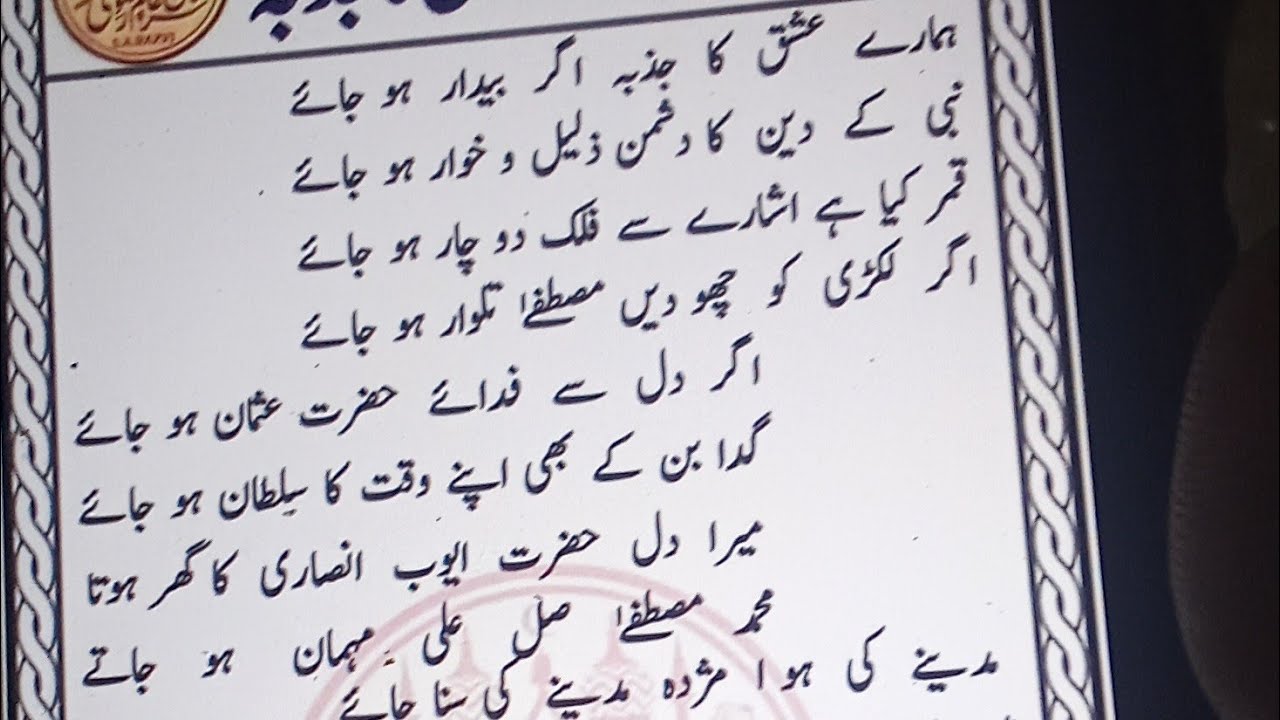 ہمارے عشق کا جذبہ اگر بیدار ہو جائے
نبی کے دین کا دشمن ذلیل و خوار ہو جائے
قمر کیا ہے اشارے سے فلک دو چار ہو جائے
اگر لکڑی کو چھو دیں مصطفےٰ تلوار ہو جائے
اگر دل سے فدائے حضرت عثمان ہو جائے
گدا بن کے بھی اپنے وقت کا سلطان ہو جائے
میرا دل حضرت ایوب انصاری کا گھر ہوتا
محمد مصطفےٰ صل علی مہمان ہو جاتے
مدینے کی ہوا مژدہ مدینے کی سنا جائے